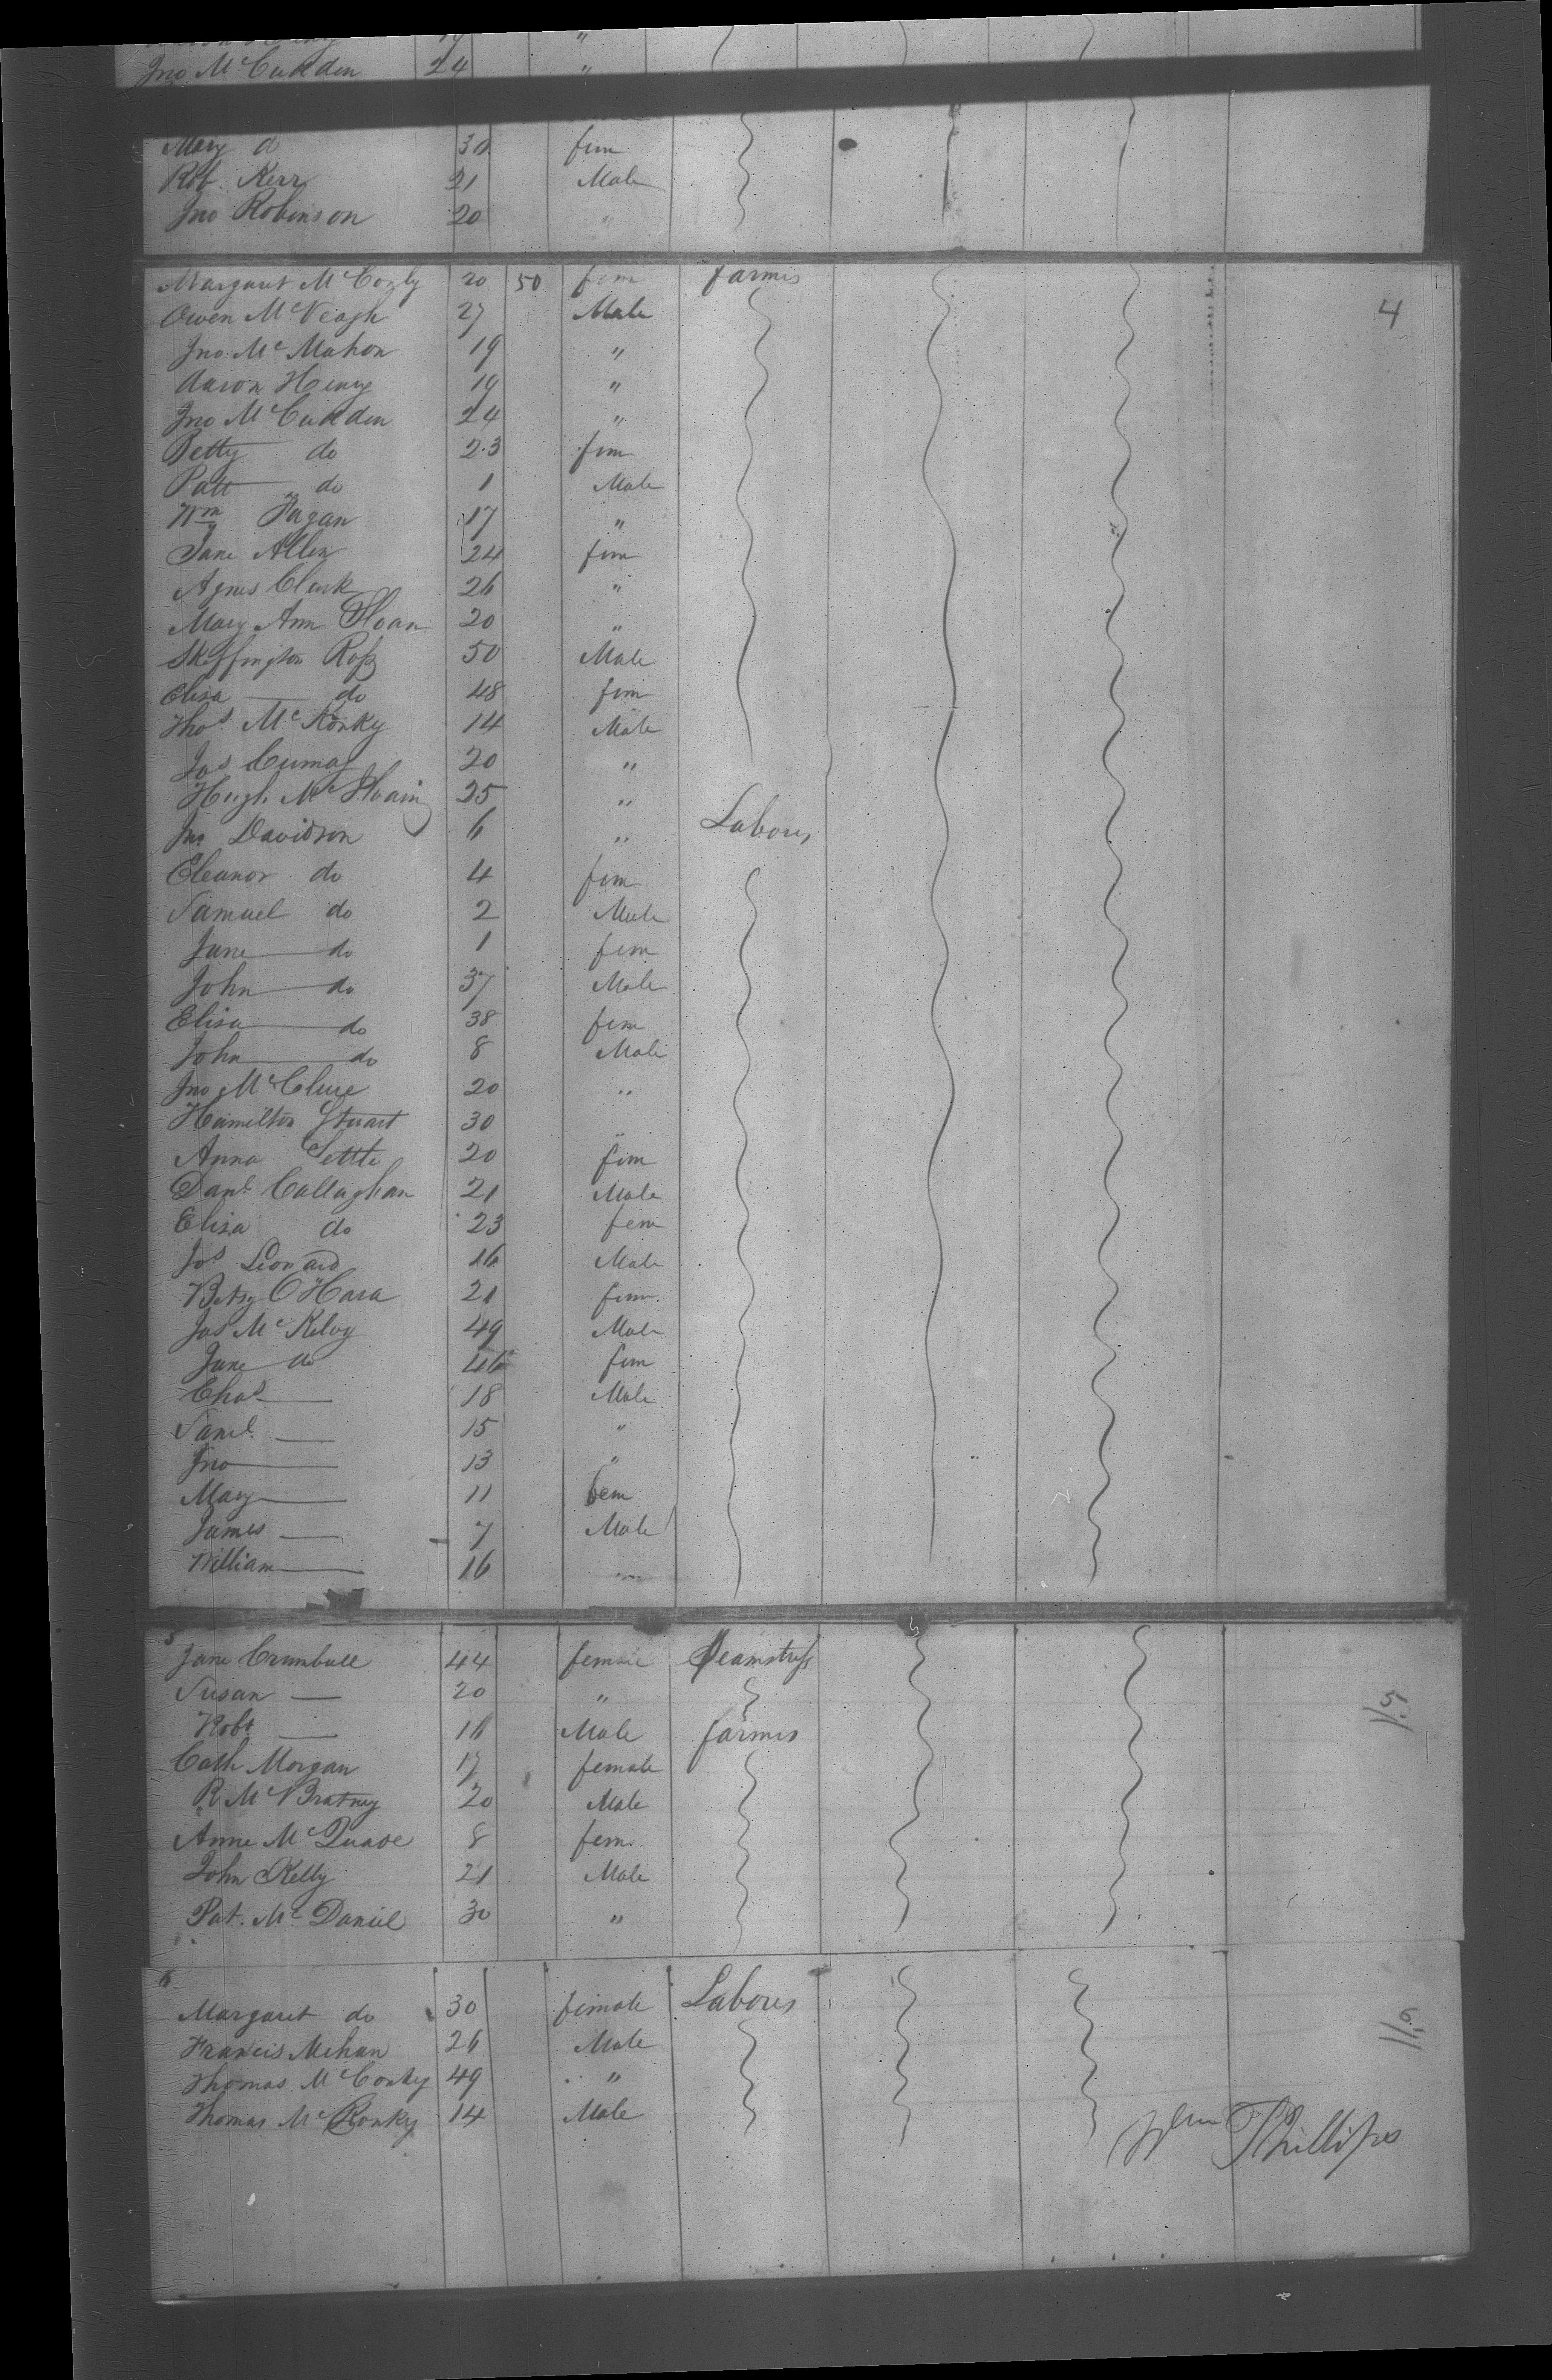 Jno McCudden 24 "
Mary do 30 fem
Rob. Kerr 21 Male
Jno Robinson 20 "
Margaret 20 50 fem farmis
Owen McVeagh 27 Male 4
Jno. McMahon 19 "
Aaron Henry 19 "
Jno McCudden 24 "
Betty do 23 fem
Patt do 1 Male
Wm Fagan 17 "
Jane Allen 24 fem
Agnes Clark 26 "
Mary Ann Sloan 20 "
Skeffington Roſs 50 Male
Elisa do 48 fem
Thos McKonky 14 Male
Jas 20 "
Hugh 25 "
Jno Davidson 6 " Labours
Eleanor do 4 fem
Samuel do 2 Male
Jane do 1 fem
John do 37 Male
Elisa do 38 fem
John do 8 Male
Jno McClure 20 "
Hamilton Stuart 30 "
Anna 20 fem
Danl. Callaghan 21 Male
Eliza do 23 fem
Jos Leonard 16 Male
Betsy O'Hara 21 fem.
Jas McKelvy 49 Male
Jane do 46 fem
Chas — 18 Male
Saml. — 15 "
Jno — 13 "
Mary — 11 fem
James — 7 Male
William — 16 "
5
Jane Crumbull 44 female Seamstreſs
Susan — 20 " 5
Robt — 16 Male farmis
Cath Morgan 17 female
R. McBratney 20 Male
Anne McQuade 8 fem.
John Kelly 21 Male
Pat. McDaniel 30 "
6
Margaret do 30 female Labours
Francis Mehan 26 Male 6
Thomas McConky 49 "
Thomas McConky 14 Male
Phillips